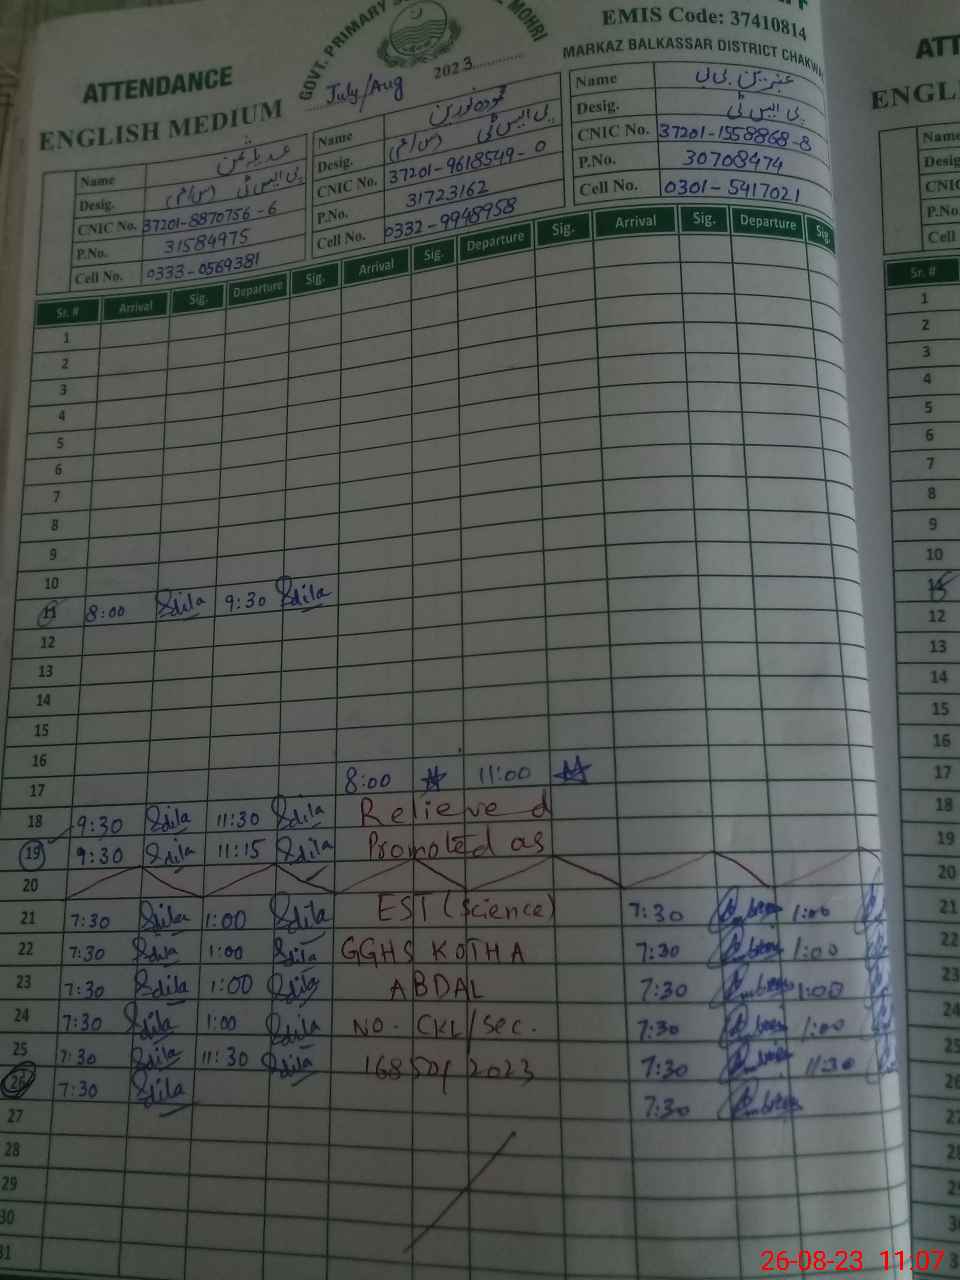 GOVT. PRIMARY S MOHRI
EMIS Code: 37410814
MARKAZ BALKASSAR DISTRICT CHAKWA
ATTENDANCE
ENGLISH MEDIUM
July/Aug 2023
Name
Desig. پی ایس ٹی (س/م)
CNIC No. 37201-8870756-6
P.No. 31584975
Cell No. 0333-0569381
Name
Desig. پی ایس ٹی (س/م)
CNIC No. 37201-9618549-0
P.No. 31723162
Cell No. 0332-9948958
Name عنبرین بی بی
Desig. پی ایس ٹی
CNIC No. 37201-1558868-8
P.No. 30708474
Cell No. 0301-5417021
Sr. # Arrival Sig. Departure Sig. Arrival Sig. Departure Sig. Arrival Sig. Departure Sig.
1
2
3
4
5
6
7
8
9
10
11 8:00 Edila 9:30 Edila
12
13
14
15
16
17 8:00 11:00
18 9:30 Edila 11:30 Edila Relieved
19 9:30 Edila 11:15 Edila Promoted as
20
21 7:30 Edila 1:00 Edila EST (Science) 7:30 1:00
22 7:30 Edila 1:00 Edila GGHS KOTHA 7:30 1:00
23 7:30 Edila 1:00 Edila ABDAL 7:30 1:00
24 7:30 Edila 1:00 Edila NO. CKL/Sec. 7:30 1:00
25 7:30 Edila 11:30 Edila 7:30 11:30
26 7:30 Edila 7:30
27
28
29
30
31
ATT
ENGLI
Name
Desig
CNIC
P.No.
Cell
Sr. #
1
2
3
4
5
6
7
8
9
10
11
12
13
14
15
16
17
18
19
20
21
22
23
24
25
26
27
28
29
3
3
26-08-23 11:07